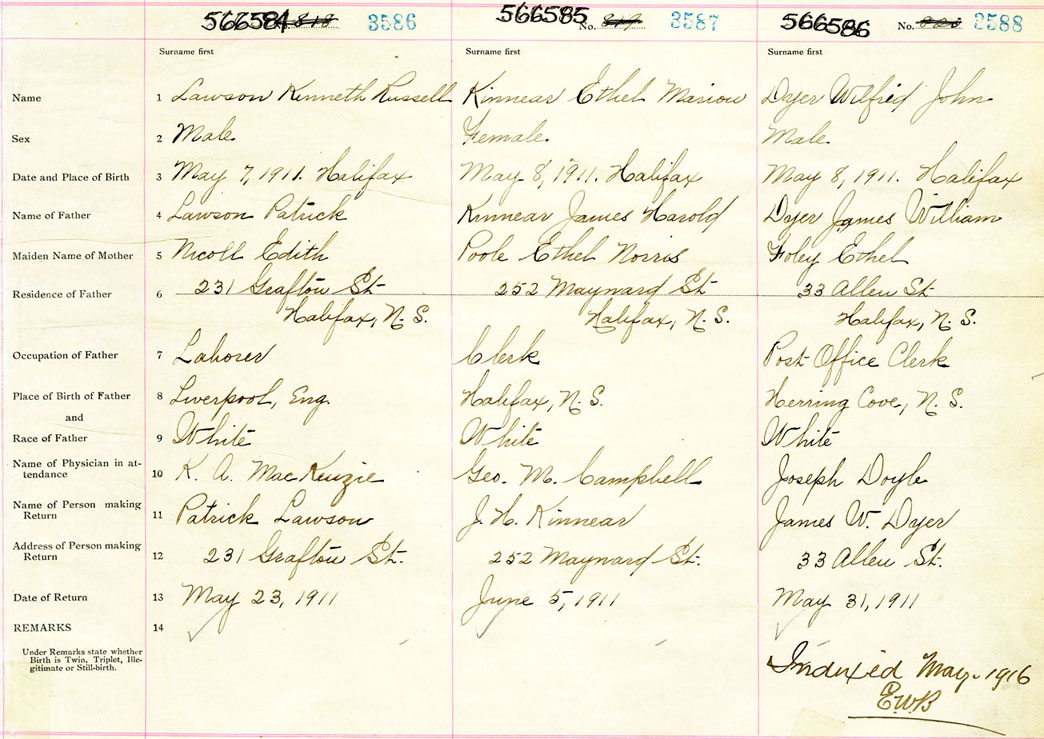 566584 3586 566585 No. 3587 566586 No. 3588
Surname first Surname first Surname first
Name 1 Lawson Kenneth Russell Kinnear Ethel Marion Dyer Wilfrid John
Sex 2 Male. Female. Male.
Date and Place of Birth 3 May 7, 1911. Halifax May 8, 1911. Halifax May 8, 1911. Halifax
Name of Father 4 Lawson Patrick Kinnear James Harold Dyer James William
Maiden Name of Mother 5 Nicoll Edith Poole Ethel Norris Foley Ethel
Residence of Father 6 231 Grafton St. 252 Maynard St. 33 Allen St.
Halifax, N.S. Halifax, N.S. Halifax, N.S.
Occupation of Father 7 Laborer Clerk Post Office Clerk
Place of Birth of Father 8 Liverpool, Eng. Halifax, N.S. Herring Cove, N.S.
and
Race of Father 9 White White White
Name of Physician in at-
tendance 10 K. A. MacKenzie Geo. M. Campbell Joseph Doyle
Name of Person making
Return 11 Patrick Lawson J. H. Kinnear James W. Dyer
Address of Person making
Return 12 231 Grafton St. 252 Maynard St. 33 Allen St.
Date of Return 13 May 23, 1911 June 5, 1911 May 31, 1911
REMARKS 14
Under Remarks state whether
Birth is Twin, Triplet, Ille-
gitimate or Still-birth.
Indexed May. 1916
E.W.B